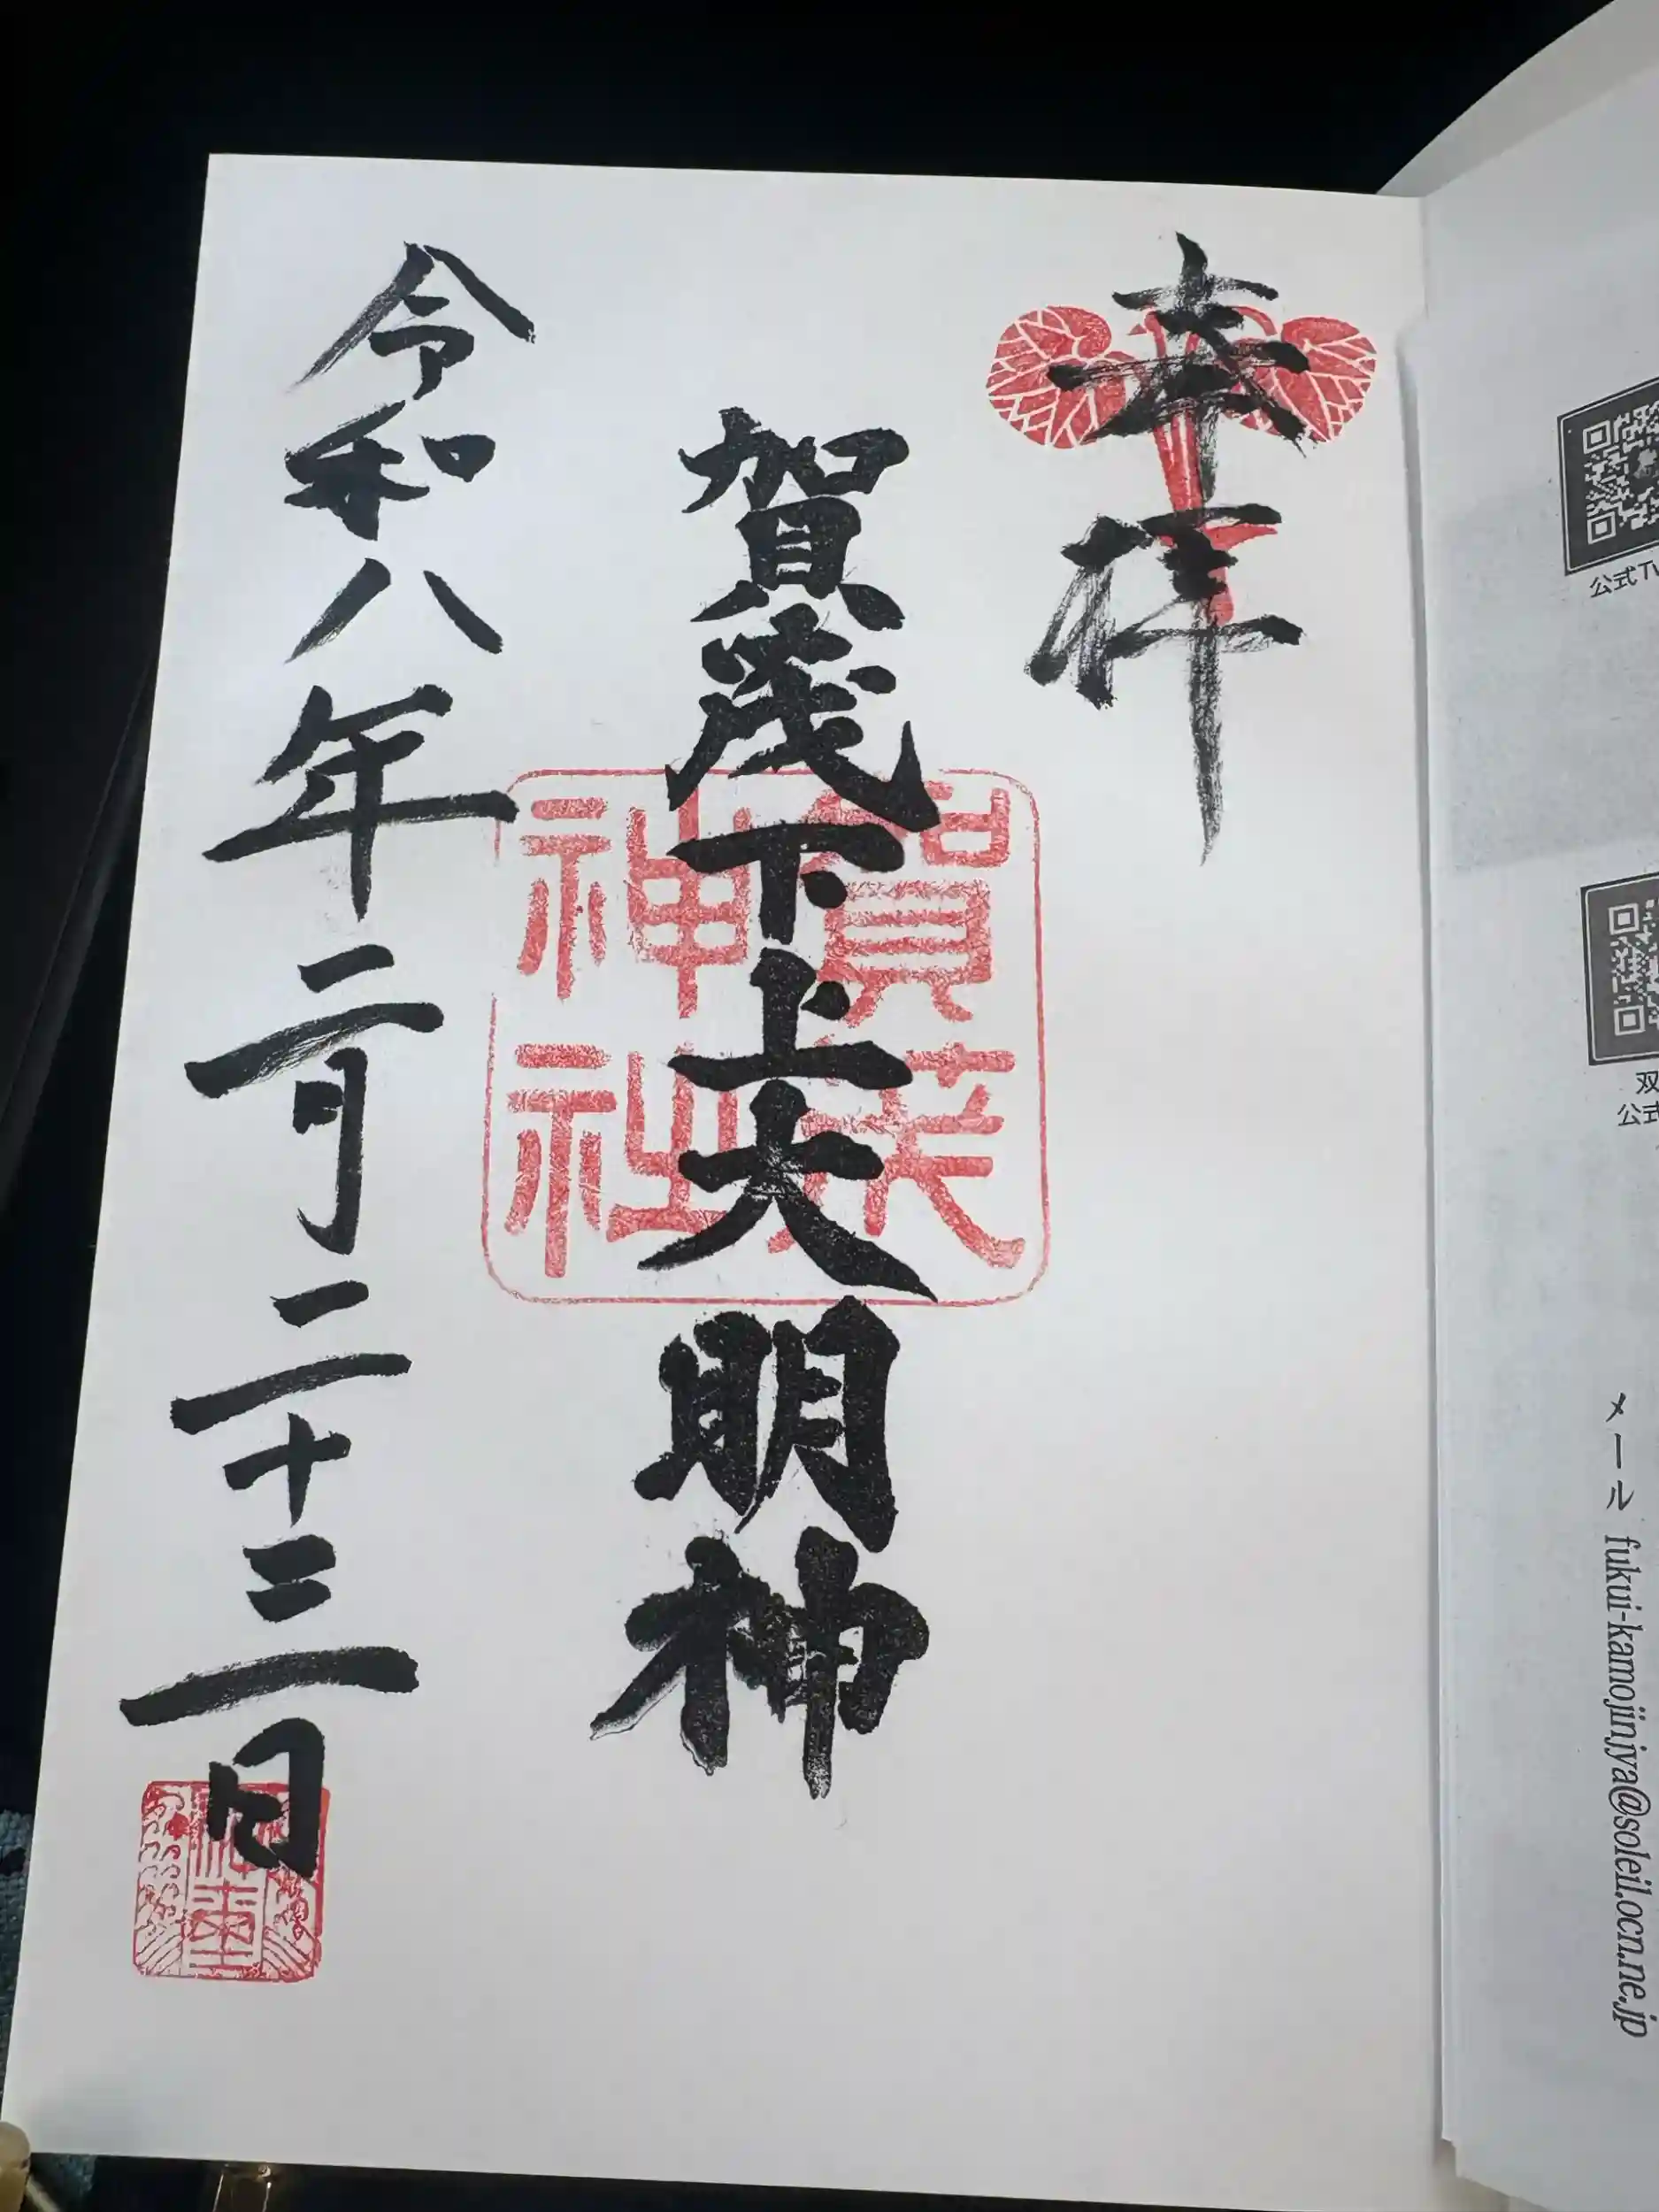 奉拝
賀茂下上大明神
令和八年二月二十三日
賀茂
神社
公式
双
公式
メール fukui-kamojinjya@soleil.ocn.ne.jp